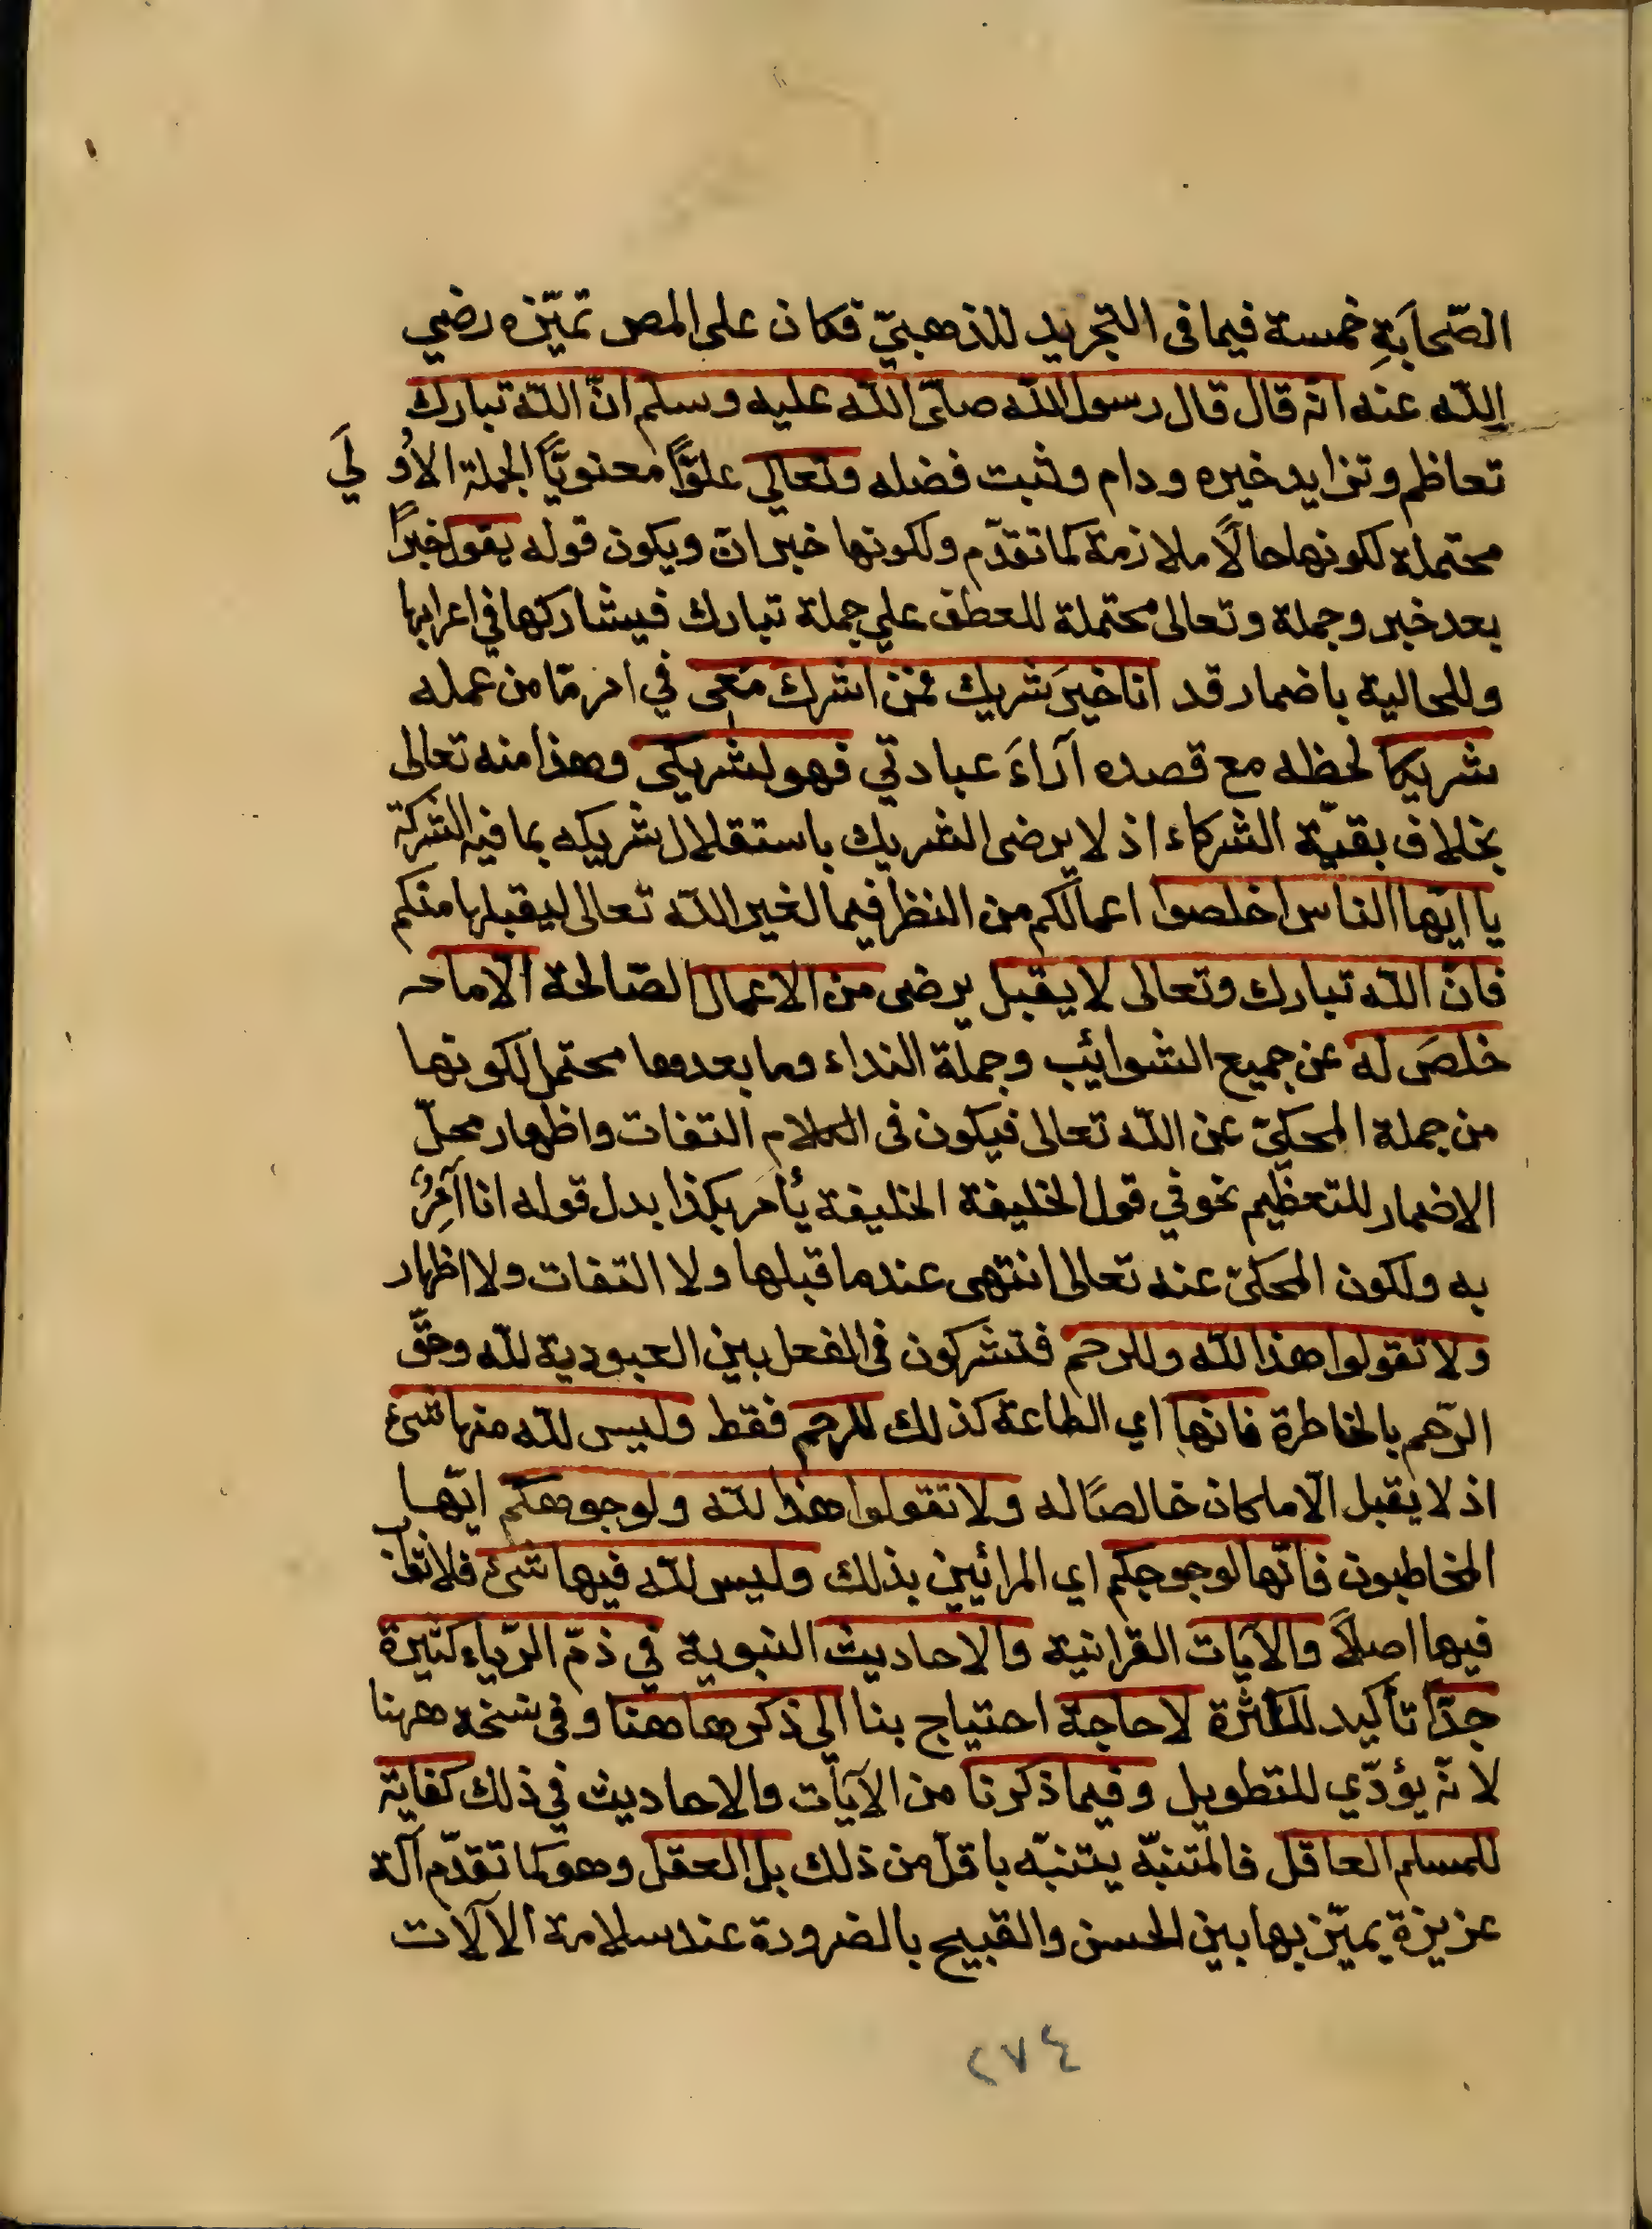 الصّحابَةِ خمسة فيما فى التجريد للذهبيّ فكان على المص تميّزه رضي
الله عنه انه قال قال رسول الله صلّى الله عليه وسلم انّ الله تبارك
تعاظم وتزايد خيره ودام وثبت فضله وتعالى علوًّا معنويًّا الجملة الاُولَي
محتملة لكونها حالًا ملازمة كما تقدّم ولكونها خبر ان ويكون قوله يقول خبرًا
بعد خبر وجملة وتعالى محتملة للعطف علي جملة تبارك فيشاركها في اعرابها
وللحالية باضمار قد انا خيرَ شريك فمن اشرك مَعِى في امر مّا من عمله
شريكا لحظه مع قصده آراءَ عبادتي فهو لشريكى وهذا منه تعالى
بخلاف بقيّة الشركاء اذ لا يرضى الشريك باستقلال شريكه بما فيه الشركة
يا ايّها الناس اخلصوا اعمالكم من النظر فيما لغير الله تعالى ليقبلها منكم
فانّ الله تبارك وتعالى لا يقبل يرضى من الاعمال الصّالحة الّا ما
خلصَ له عن جميع الشوائيب وجملة النداء وما بعدها محتمل لكونها
من جملة المحكيّ عن الله تعالى فيكون فى الكلام التفات واظهار محلّ
الاضمار للتعظيم نحو في قول الخليفة الخليفة يُأمر بكذا بدل قوله انا آمِرٌ
به ولكون المحكىّ عنه تعالى انتهى عند ما قبلها ولا التفات ولا اظهار
ولا تقولوا هذا لله وللرحم فتشركون فى الفعل بين العبودية لله وحقّ
الرّحم بالخاطرة فانها اي الطاعة كذلك للرحم فقط وليس لله منها شئ
اذ لا يقبل الّا ما كان خالصًا له ولا تقولوا هذا لله ولوجوهكم ايّها
المخاطبون فانّها لوجوهكم اي المرائيين بذلك وليس لله فيها شئ فلا ثواب
فيها اصلاً والآيات القرانية والاحاديث النبوية في ذمّ الرّياء كثيرة
جدّا تأكيد للكثرة لا حاجة احتياج بنا الي ذكرها هنا وفى نسخة ههنا
لانه يؤدّي للتطويل وفيما ذكرنا من الآيات والاحاديث في ذلك كفاية
للمسلم العاقل فالمتنبّه يتنبّه باقلّ من ذلك بل العقل وهو كما تقدّم آلة
عزيزة يميّز بها بين الحسن والقبيح بالضرورة عند سلامة الآلات
٢٧٤